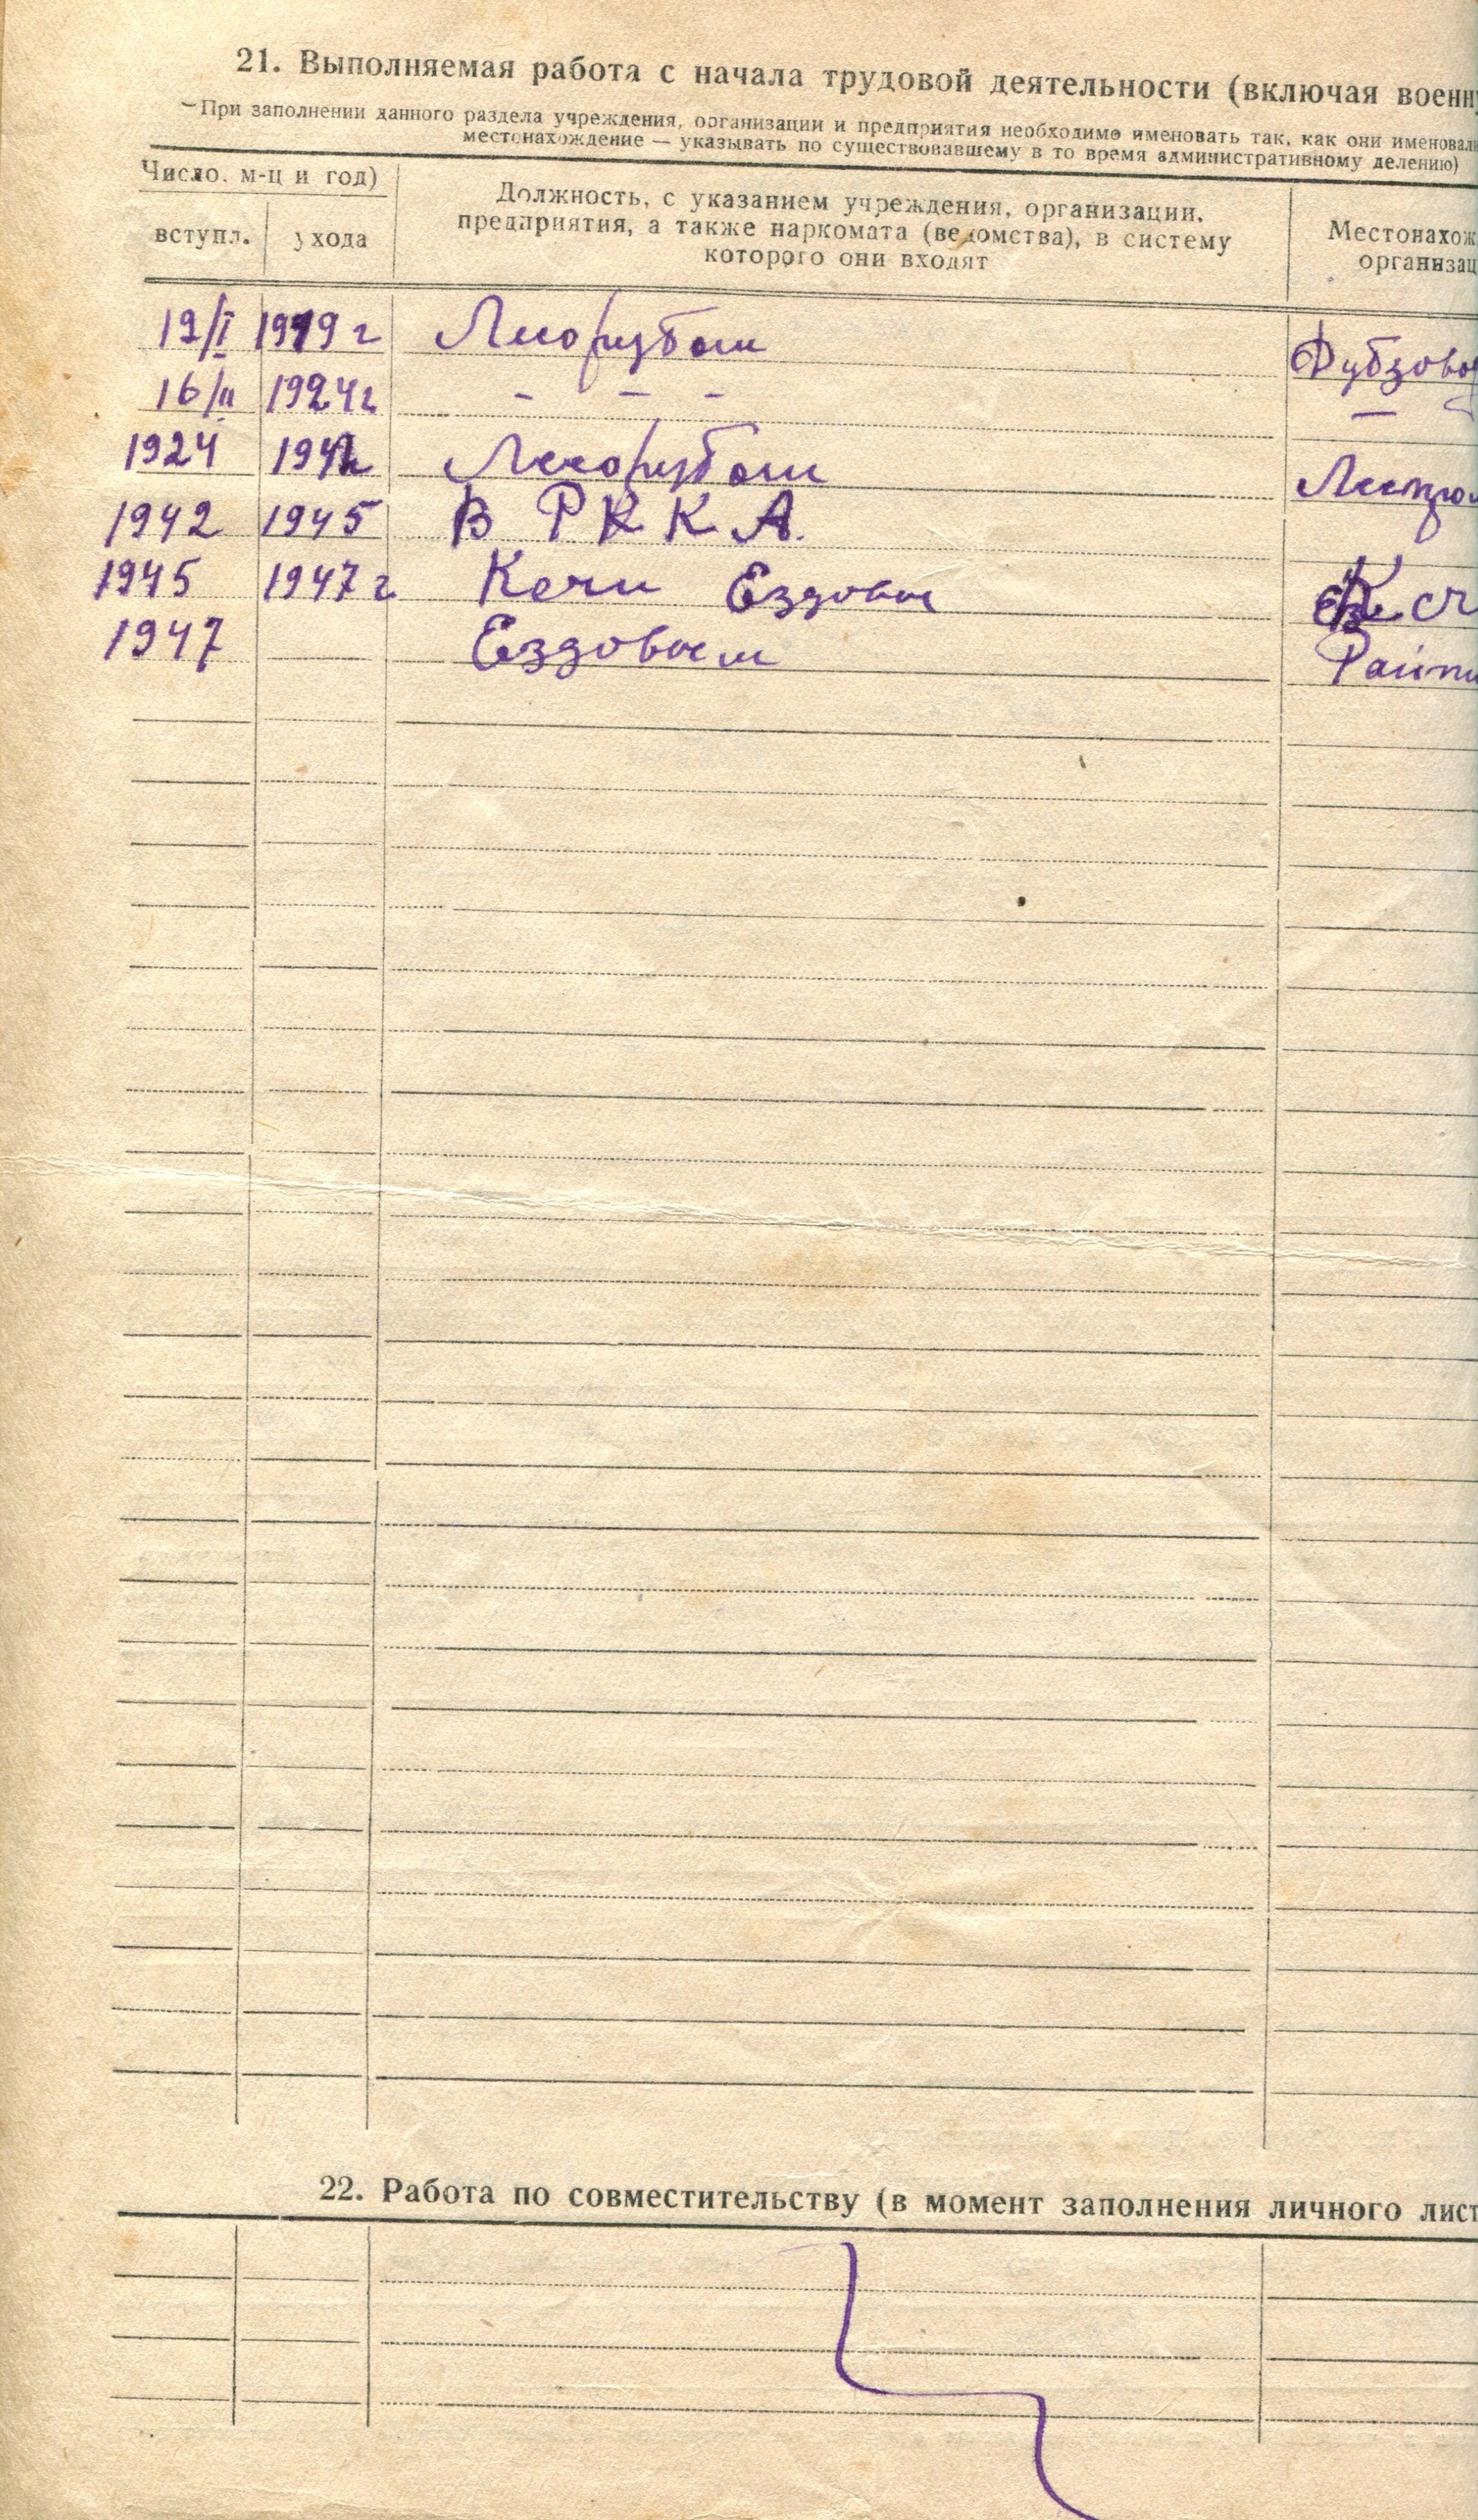 21. Выполняемая работа с начала трудовой деятельности (включая военн
При заполнении данного раздела учреждения, организации и предприятия необходимо именовать так, как они именовали
местонахождение — указывать по существовавшему в то время административному делению)
Число, м-ц и год)
вступл. ухода
Должность, с указанием учреждения, организации,
предприятия, а также наркомата (ведомства), в систему
которого они входят
Местонахож
организац
19/I 1919 г Лесорубом
16/II 1924 г - - - —
1924 Лесорубом Леспро
1942 1945 В Р К К А.
1945 1947 г Ездовое
1947 Ездовоем Райп
22. Работа по совместительству (в момент заполнения личного лист